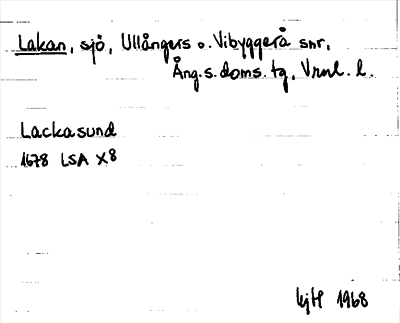 Lakan, sjö, Ullångers o. Vibyggerå snr,
Ång. s. doms. tg, Vrnl. l.
Lackasund
1678 LSA X8
1968